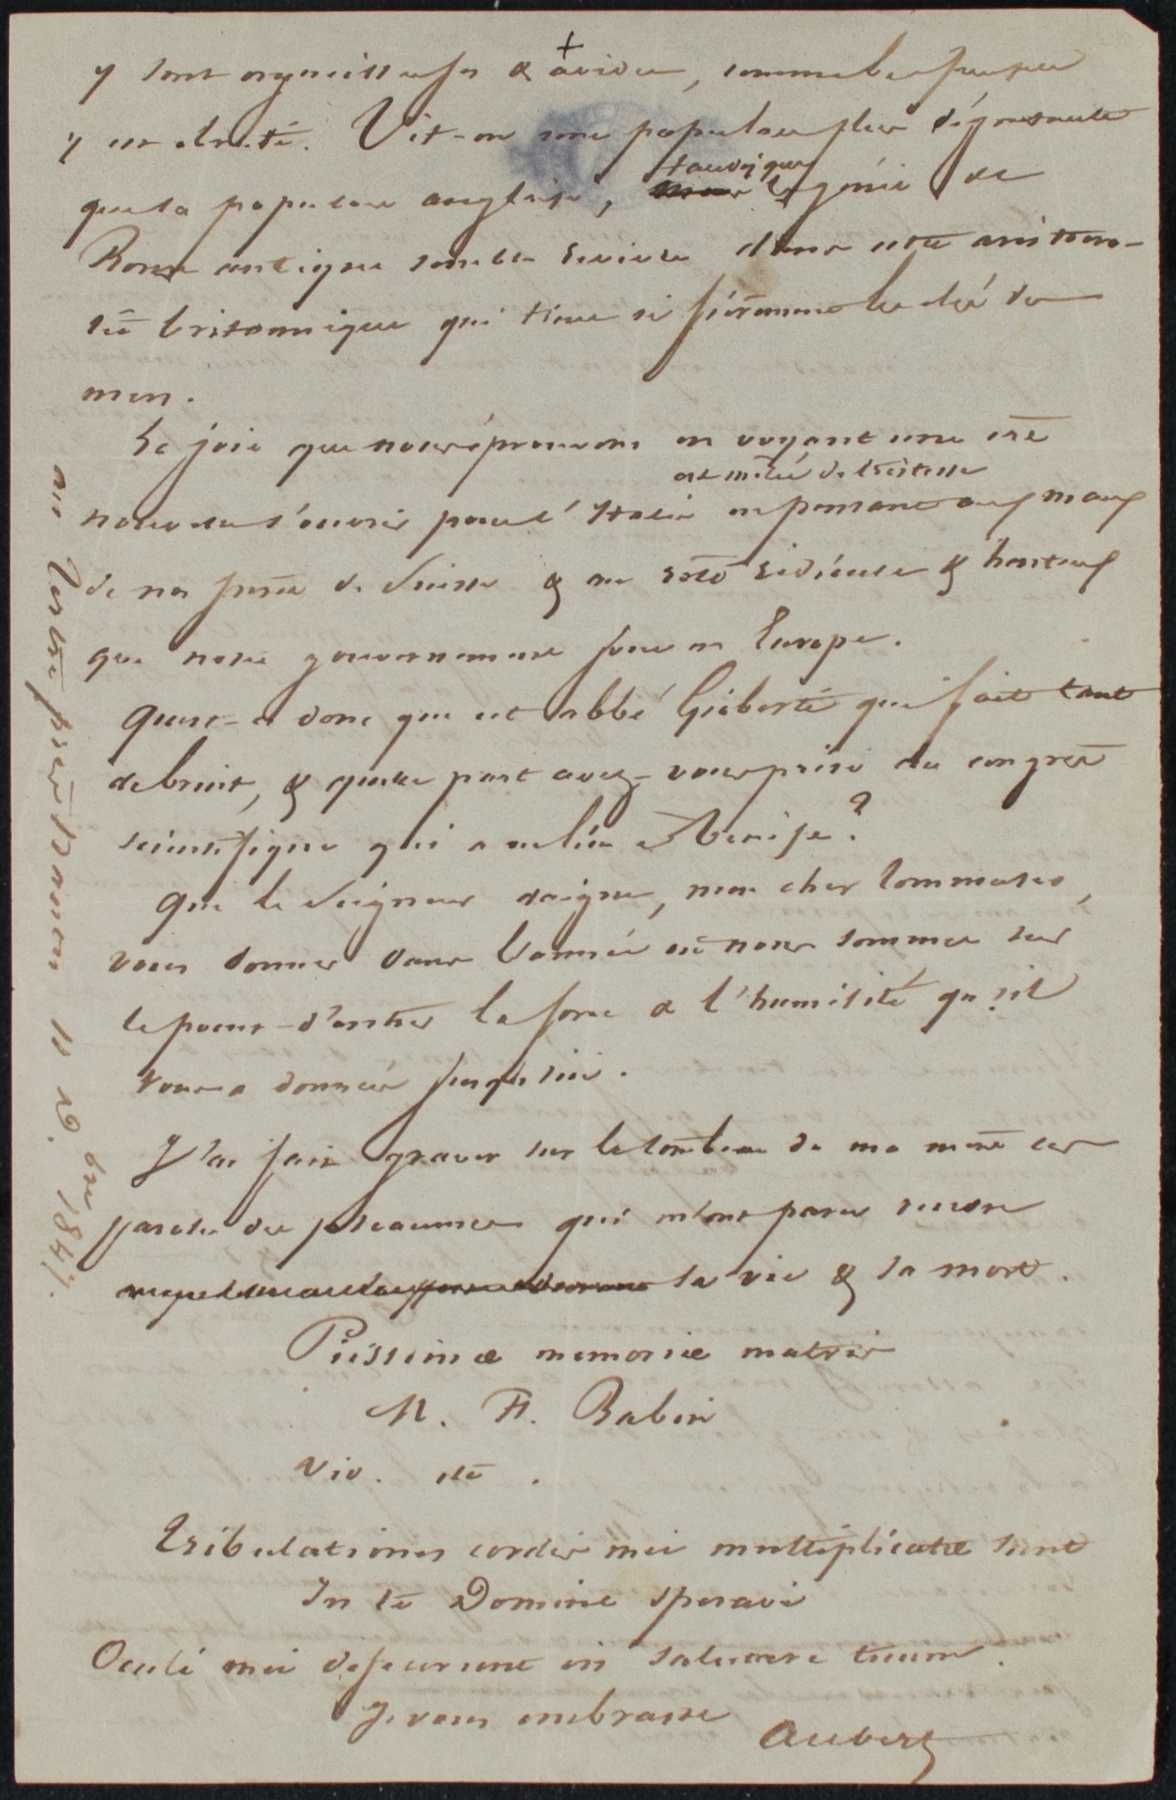 y sont orgueilleuses & avides, comme le peuple
y est Vit-on une populace plus dégoutante
que la populace anglaise, tandis que le génie de
Rome antique semble revivre dans cette aristocra-
tie britannique qui tient si fièrement les clés du
mon.
La joie que nous éprouvons en voyant une ère
nouvelle s'ouvrir pour l'Italie est mêlée de tristesse en pensant aux maux
de nos frères de Suisse & au rôle ridicule & honteux
que notre gouvernement joue en Europe.
Qu'est-ce donc que cet abbé Gioberti qui fait tant
de bruit, & quelle part avez-vous prise au congrès
scientifique qui a eu lieu à Venise?
Que le Seigneur daigne, mon cher Tommaseo,
vous donner dans l'année où nous sommes sur
le point d'entrer la force & l'humilité qu'il
vous a données jusqu'ici.
J'ai fait graver sur le tombeau de ma mère ces
paroles des pseaumes qui m'ont paru rendre
sa vie & sa mort.
Piissimæ memoriæ matris
M. F. Babin
Vid. 
Tribulationes cordis mei multiplicatæ sunt
In te Domine speravi
Oculi mei defecerunt in salutare tuum.
Je vous embrasse
Aubert
10 Xbre 1847.